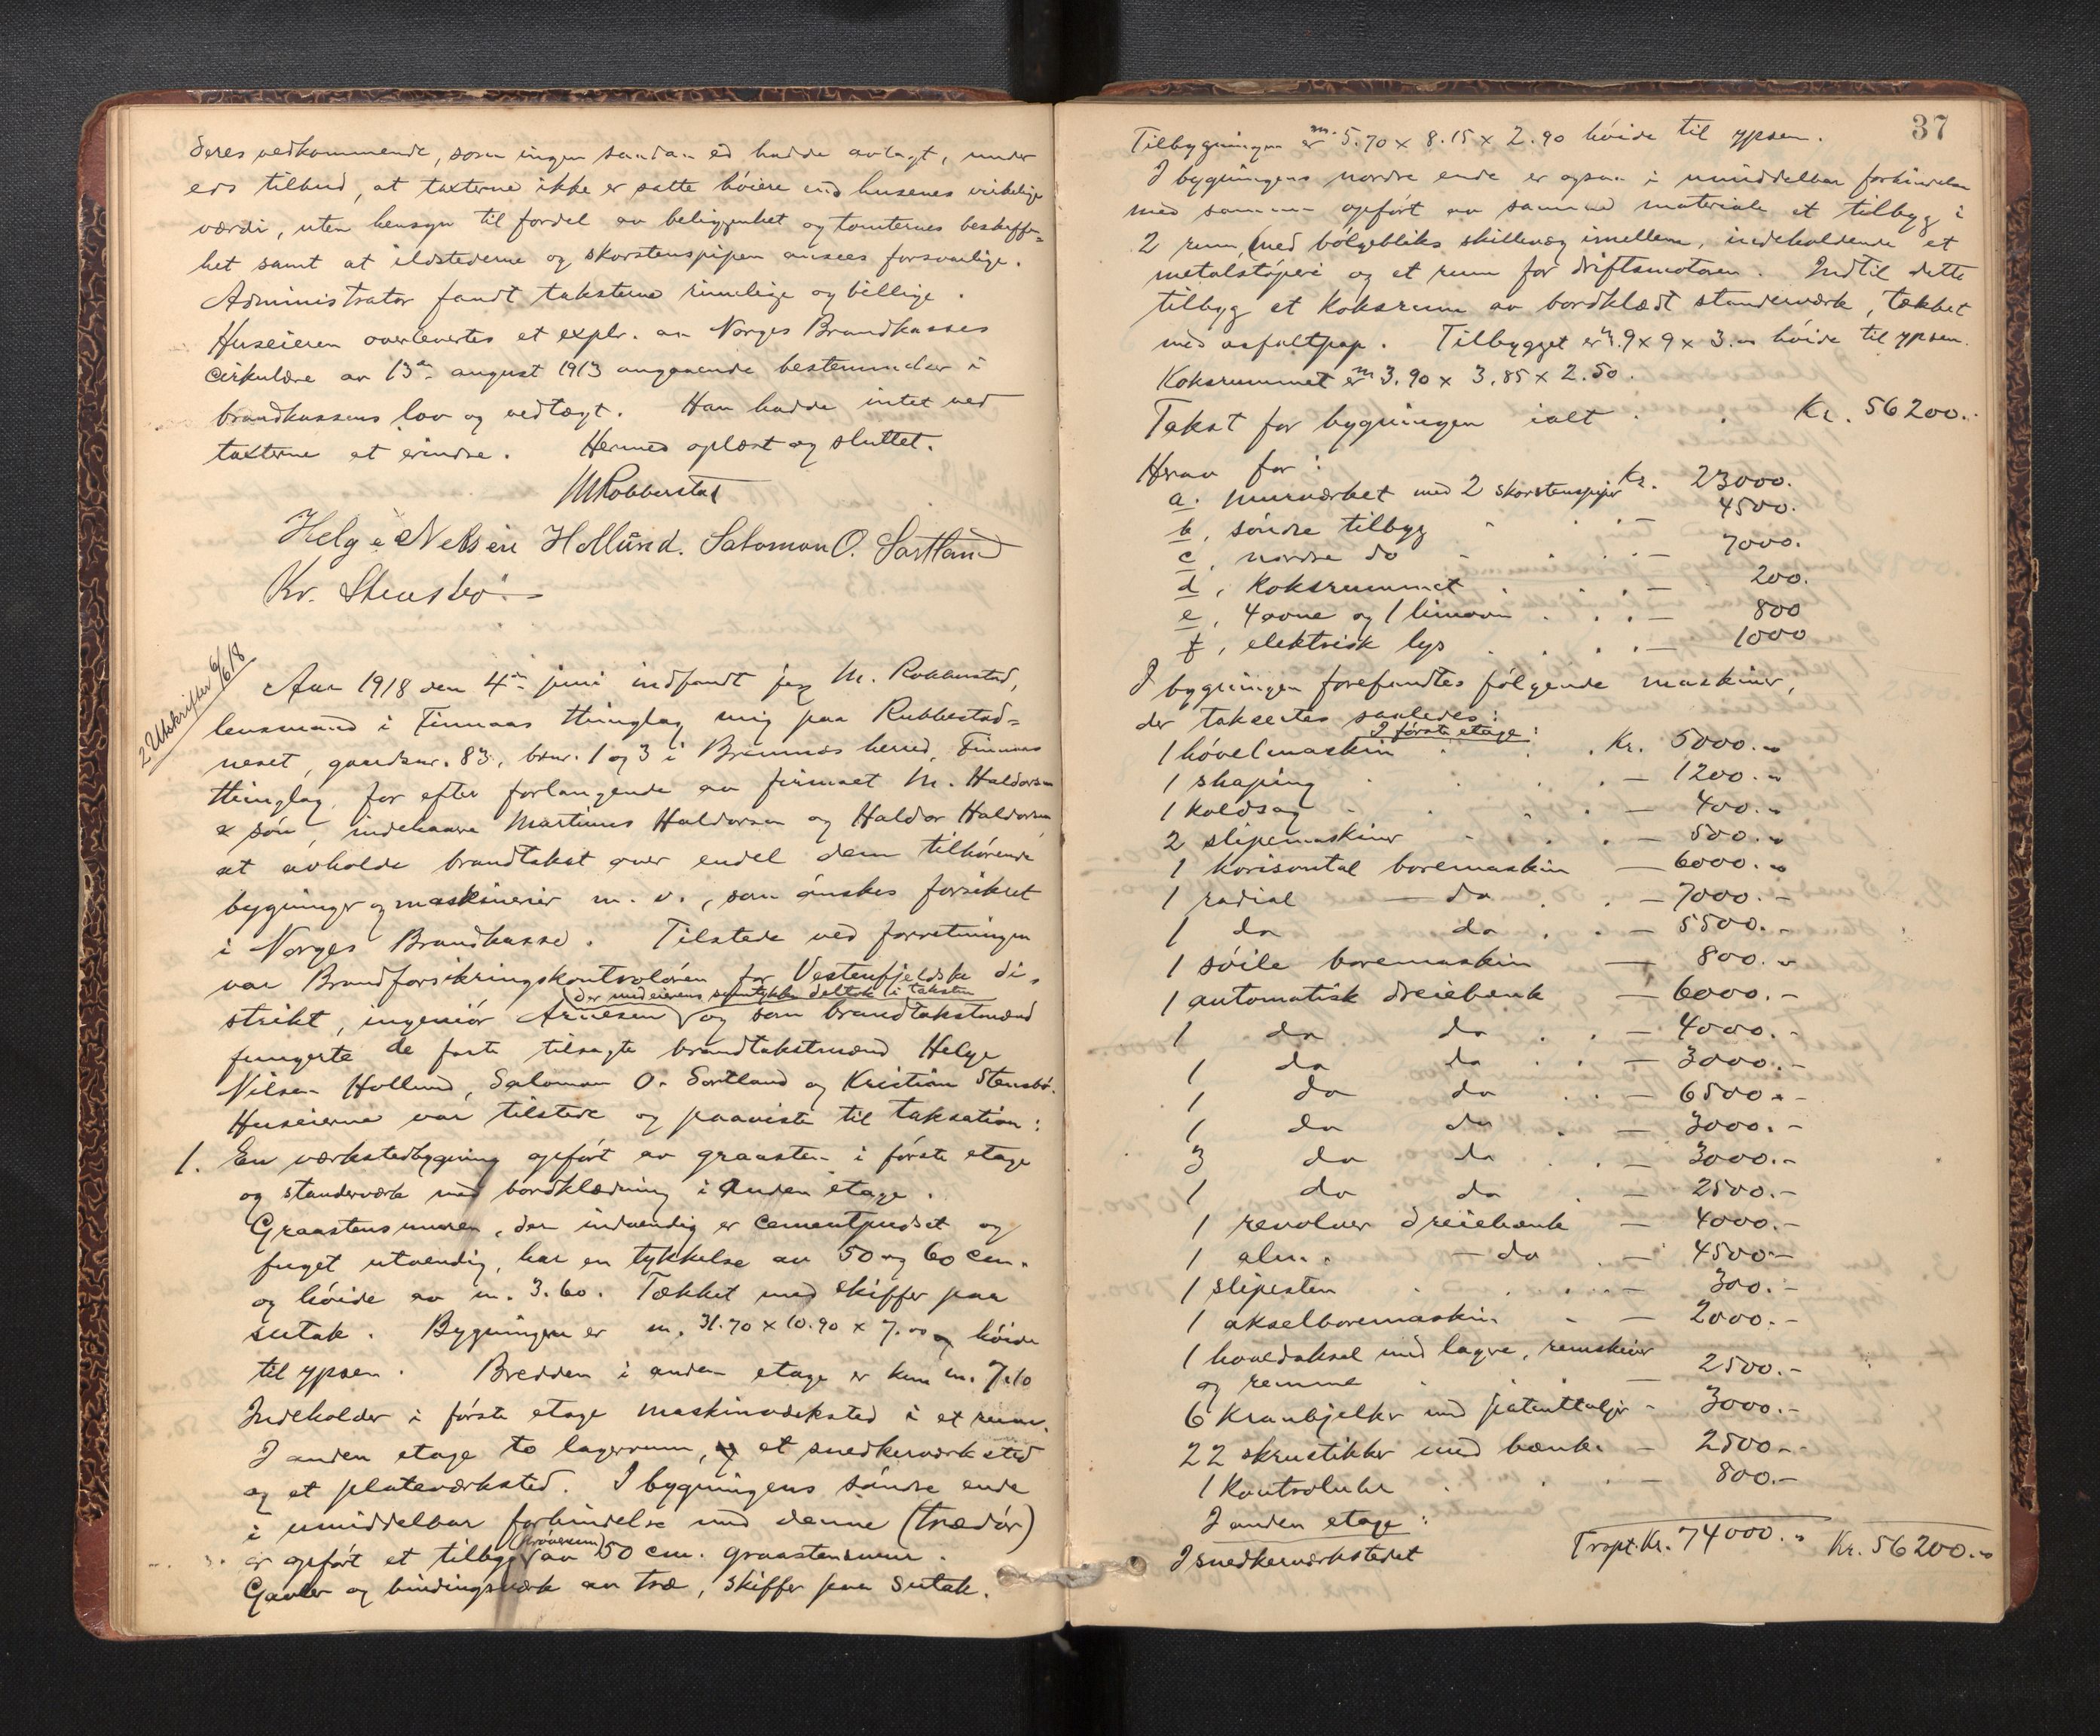 deres vedkommende, som ingen saadan ed hadde avlagt, under
eds tilbud, at taxterne ikke er satte høiere end husenes virkelige
værdi, uten hensyn til fordel av beliggenhet og tomternes beskaffen=
het samt at ildstederne og skorstenspipen ansees forsvarlige.
Administrator fandt taksterne rimelige og billige.
Huseieren overlevertes et explr. av Norges Brandkasses
cirkulære av 13de august 1913 angaaende bestemmelser i
brandkassens lov og vedtægt. Han hadde intet ved
taxterne at erindre. Hermed oplæst og sluttet.
M Robberstad
Helge Nelsen Hollund. Salomon O. Sortland
Kr. Stensbø.
2 Utskrifter 6/6 18
Aar 1918 den 4de juni indfandt jeg M. Robberstad,
lensmand i Finnaas thinglag mig paa Rubbestad=
neset, gaardsnr. 83, bnr. 1 og 3 i Bremnes herred, Finnaas
thinglag, for efter forlangende av firmaet M. Haldorsen
& søn, indehavere Martinus Haldorsen og Haldor Haldorsen
at avholde brandtakst over endel dem tilhørende
bygninger og maskinerier m. v., som ønskes forsikret
i Norges Brandkasse. Tilstede ved forretningen
var Brandforsikringskontroløren for Vestenfjeldske di-
strikt, ingeniør Arnesen der med eierens samtykke deltok i taksten og som brandtakstmænd
fungerte de faste tilsagte brandtakstmænd Helge
Nilsen Hollund, Salomon O. Sortland og Kristian Stensbø.
Huseierne var tilstede og paaviste til taksation:
1. En værkstedbygning opført av graasten i første etage
og standerværk med bordklædning i anden etage.
Graastensmuren, der indvendig er cementpudset og
fuget utvendig, har en tykkelse av 50 og 60 cm.
og høide av m. 3.60. Tækket med skiffer paa
sutak. Bygningen er m. 31.70 x 10.90 x 7.00 høide
til ypsen. Bredden i anden etage er kun m. 7.10
Indeholder i første etage maskinværksted i et rum.
I anden etage to lagerrum, et snedkerværksted
og et plateværksted. I bygningens søndre ende
i umiddelbar forbindelse med denne (trædør)
er opført et tilbygg (prøverum) av 50 cm. graastensmur.
Gavler og bindingsværk av træ, skiffer paa sutak.
37
Tilbygningen er m. 5.70 x 8.15 x 2.90 høide til ypsen.
I bygningens nordre ende er ogsaa i umiddelbar forbindelse
med samme opført av samme materiale et tilbygg i
2 rum (med bølgebliks skillevæg imellem, indeholdende et
metalstøperi og et rum for driftsmotoren. Indtil dette
tilbygg et koksrum av bordklædt standerværk, tækket
med asfaltpap. Tilbygget er m. 9 x 9 x 3.00 høide til ypsen.
Koksrummet er m 3.90 x 3.85 x 2.50.
Takst for bygningen ialt . . Kr. 56200.
Herav for:
a. murværket med 2 skorstenspiper Kr. 23000.
b, søndre tilbygg - . . — 4500.
c, nordre do - . . — 7000.
d, koksrummet . . . — 200.
e, 4 ovne og 1 limovn . . . — 800
f, elektrisk lys . . . — 1000
I bygningen forefandtes følgende maskiner,
der taksertes saaledes:
I første etage:
1 høvelmaskin . . . Kr. 5000.-
1 shaping . . . — 1200.-
1 koldsag . . . — 400.-
2 slipemaskiner . . . — 500.-
1 horisontal boremaskin — 6000.-
1 radial — do . . — 7000.-
1 do do . . — 5500.-
1 søile boremaskin — 800.-
1 automatisk dreiebænk — 6000.-
1 do do . . — 4000.-
1 do do . . — 3000.-
1 do do . . — 6500.-
1 do do . — 3000.-
3 do do . . — 3000.-
1 do do . — 2500.-
1 revolver dreiebænk — 4000.-
1 alm. — do . — 4500.-
1 slipesten . . . — 300.-
1 akselboremaskin - — 2000.-
1 hovedaksel med lagre, remskiver
og remme . . — 2500.-
6 Kranbjelker med patenttaljer - 3000.-
22 skrustikker med bænk. — 2500.-
1 Kontroluhr . . . — 800.-
I anden etage:
I snedkerværkstedet Trspt. Kr. 74000.- Kr. 56200.-